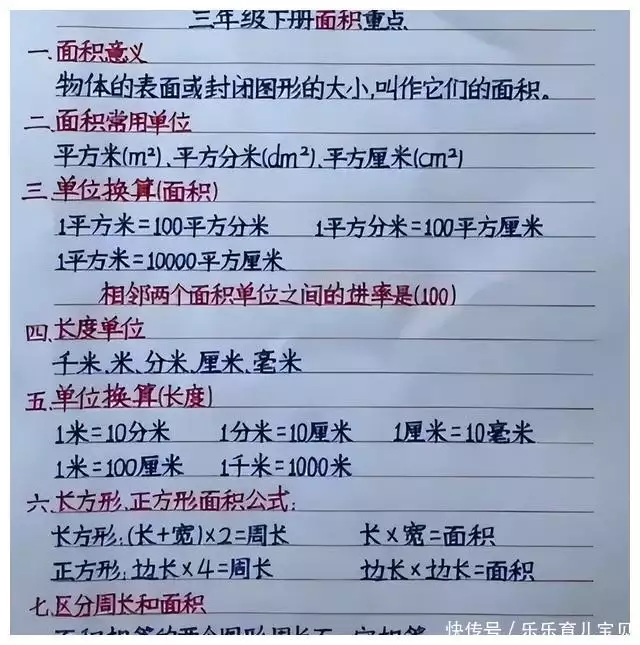 三年级下册面积重点
一.面积意义
物体的表面或封闭图形的大小,叫作它们的面积。
二.面积常用单位
平方米(m²)、平方分米(dm²)、平方厘米(cm²)
三.单位换算(面积)
1平方米=100平方分米 1平方分米=100平方厘米
1平方米=10000平方厘米
相邻两个面积单位之间的进率是(100)
四.长度单位
千米、米、分米、厘米、毫米
五.单位换算(长度)
1米=10分米 1分米=10厘米 1厘米=10毫米
1米=100厘米 1千米=1000米
六.长方形、正方形面积公式:
长方形:(长+宽)×2=周长 长×宽=面积
正方形:边长×4=周长 边长×边长=面积
七.区分周长和面积
面积相等的两个图形周长不一定相等
快传号/乐乐育儿宝贝